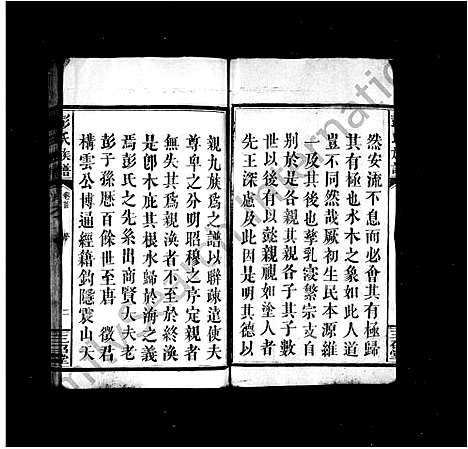 然安流不息而必會其有極歸
其有極也水木之象如此人道
豈不同然哉厥初生民本源維
一及其後也孳乳寖繁宗支自
別於是各親其親各子其子數
世以後有以懿親視如塗人者
先王深慮及此因是明其德以
親九族為之譜以聯疎遠使夫
尊卑之分明昭穆之序定親者
無失其為親渙者不至於終渙
是卽木庇其根水歸於海之義
焉彭氏之先系出商賢大夫老
彭子孫曆百餘世至唐 徵君
構雲公博通經籍鈎隱袁山天
彭氏族譜
卷首
二